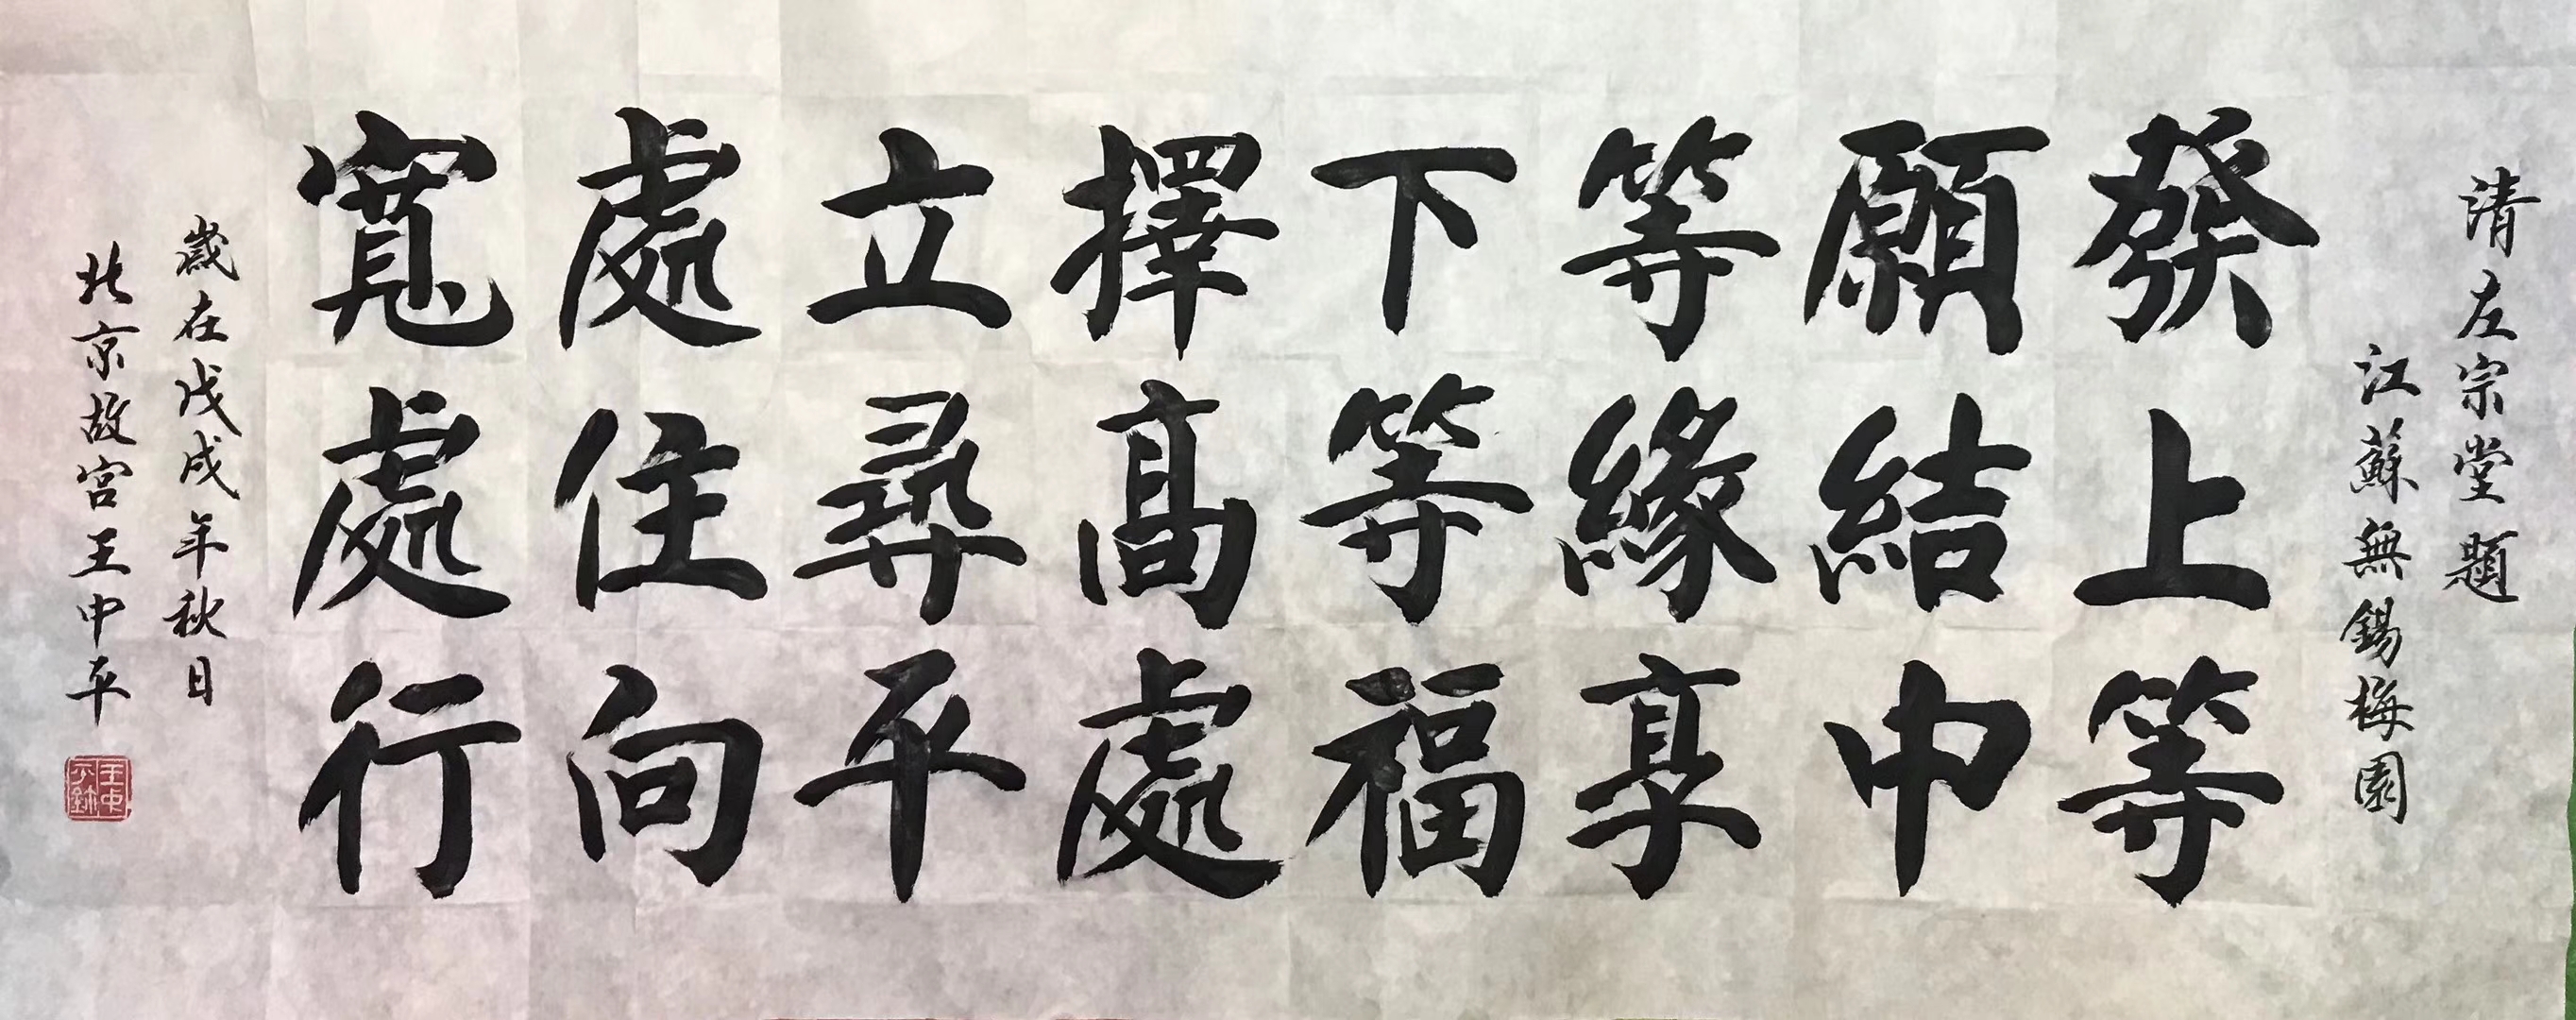 清左宗堂題
江蘇無錫梅園
發上等
願結中
等緣享
下等福
擇高處
立尋平
處住向
寬處行
歲在戊戌年秋日
北京故宮王中平